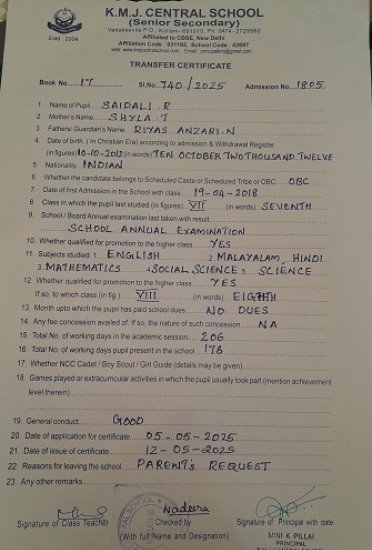 K.M.J. CENTRAL SCHOOL
(Senior Secondary)
Vadakkevila P.O., Kollam-691010, Ph: 0474-2729562
Affiliated to CBSE, New Delhi
Affiliation Code : 931192, School Code : 43697
Estd : 2004
TRANSFER CERTIFICATE
Book No. 17 Sl No 740/2025 Admission No. 1805
1. Name of Pupil SAIDALI R
2. Mother's Name SHYLA T
3. Fathers/ Guardian's Name RIYAS ANZARI.N
4. Date of birth ( In Christian Era) according to admission & Withdrawal Register
(in figures) 10-10-2012 (in words) TEN OCTOBER TWO THOUSAND TWELVE
5. Nationality INDIAN
6. Whether the candidate belongs to Scheduled Caste or Scheduled Tribe or OBC OBC
7. Date of first Admission in the School with class 19-04-2018
8. Class in which the pupil studied (in figures) VII (in words) SEVENTH
9. School / Board Annual examination last taken with result
SCHOOL ANNUAL EXAMINATION
10. Whether qualified for promotion to the higher class YES
11. Subjects studied 1. ENGLISH 2. MALAYALAM, HINDI
3. MATHEMATICS 4. SOCIAL SCIENCE 5. SCIENCE
12. Whether qualified for promotion to the higher class YES
If so, to which class (in fig ) VIII (in words)
13. Month upto which the pupil has paid school dues NO DUES
14. Any fee concession availed of. If so, the nature of such concession NA
15. Total No. of working days in the academic session 206
16. Total No. of working days pupil present in the school 176
17. Whether NCC Cadet / Boy Scout / Girl Guide (details may be given)
18. Games played or extracurricular activities in which the pupil usually took part (mention achievement
level therein)
19. General conduct GOOD
20. Date of application for certificate 05-05-2025
21. Date of issue of certificate 12-05-2025
22. Reasons for leaving the school PARENT'S REQUEST
23. Any other remarks
Nadeera
Signature of Class Teacher Checked by Signature of Principal with date
(With full Name and Designation) MINI K PILLAI
PRINCIPAL